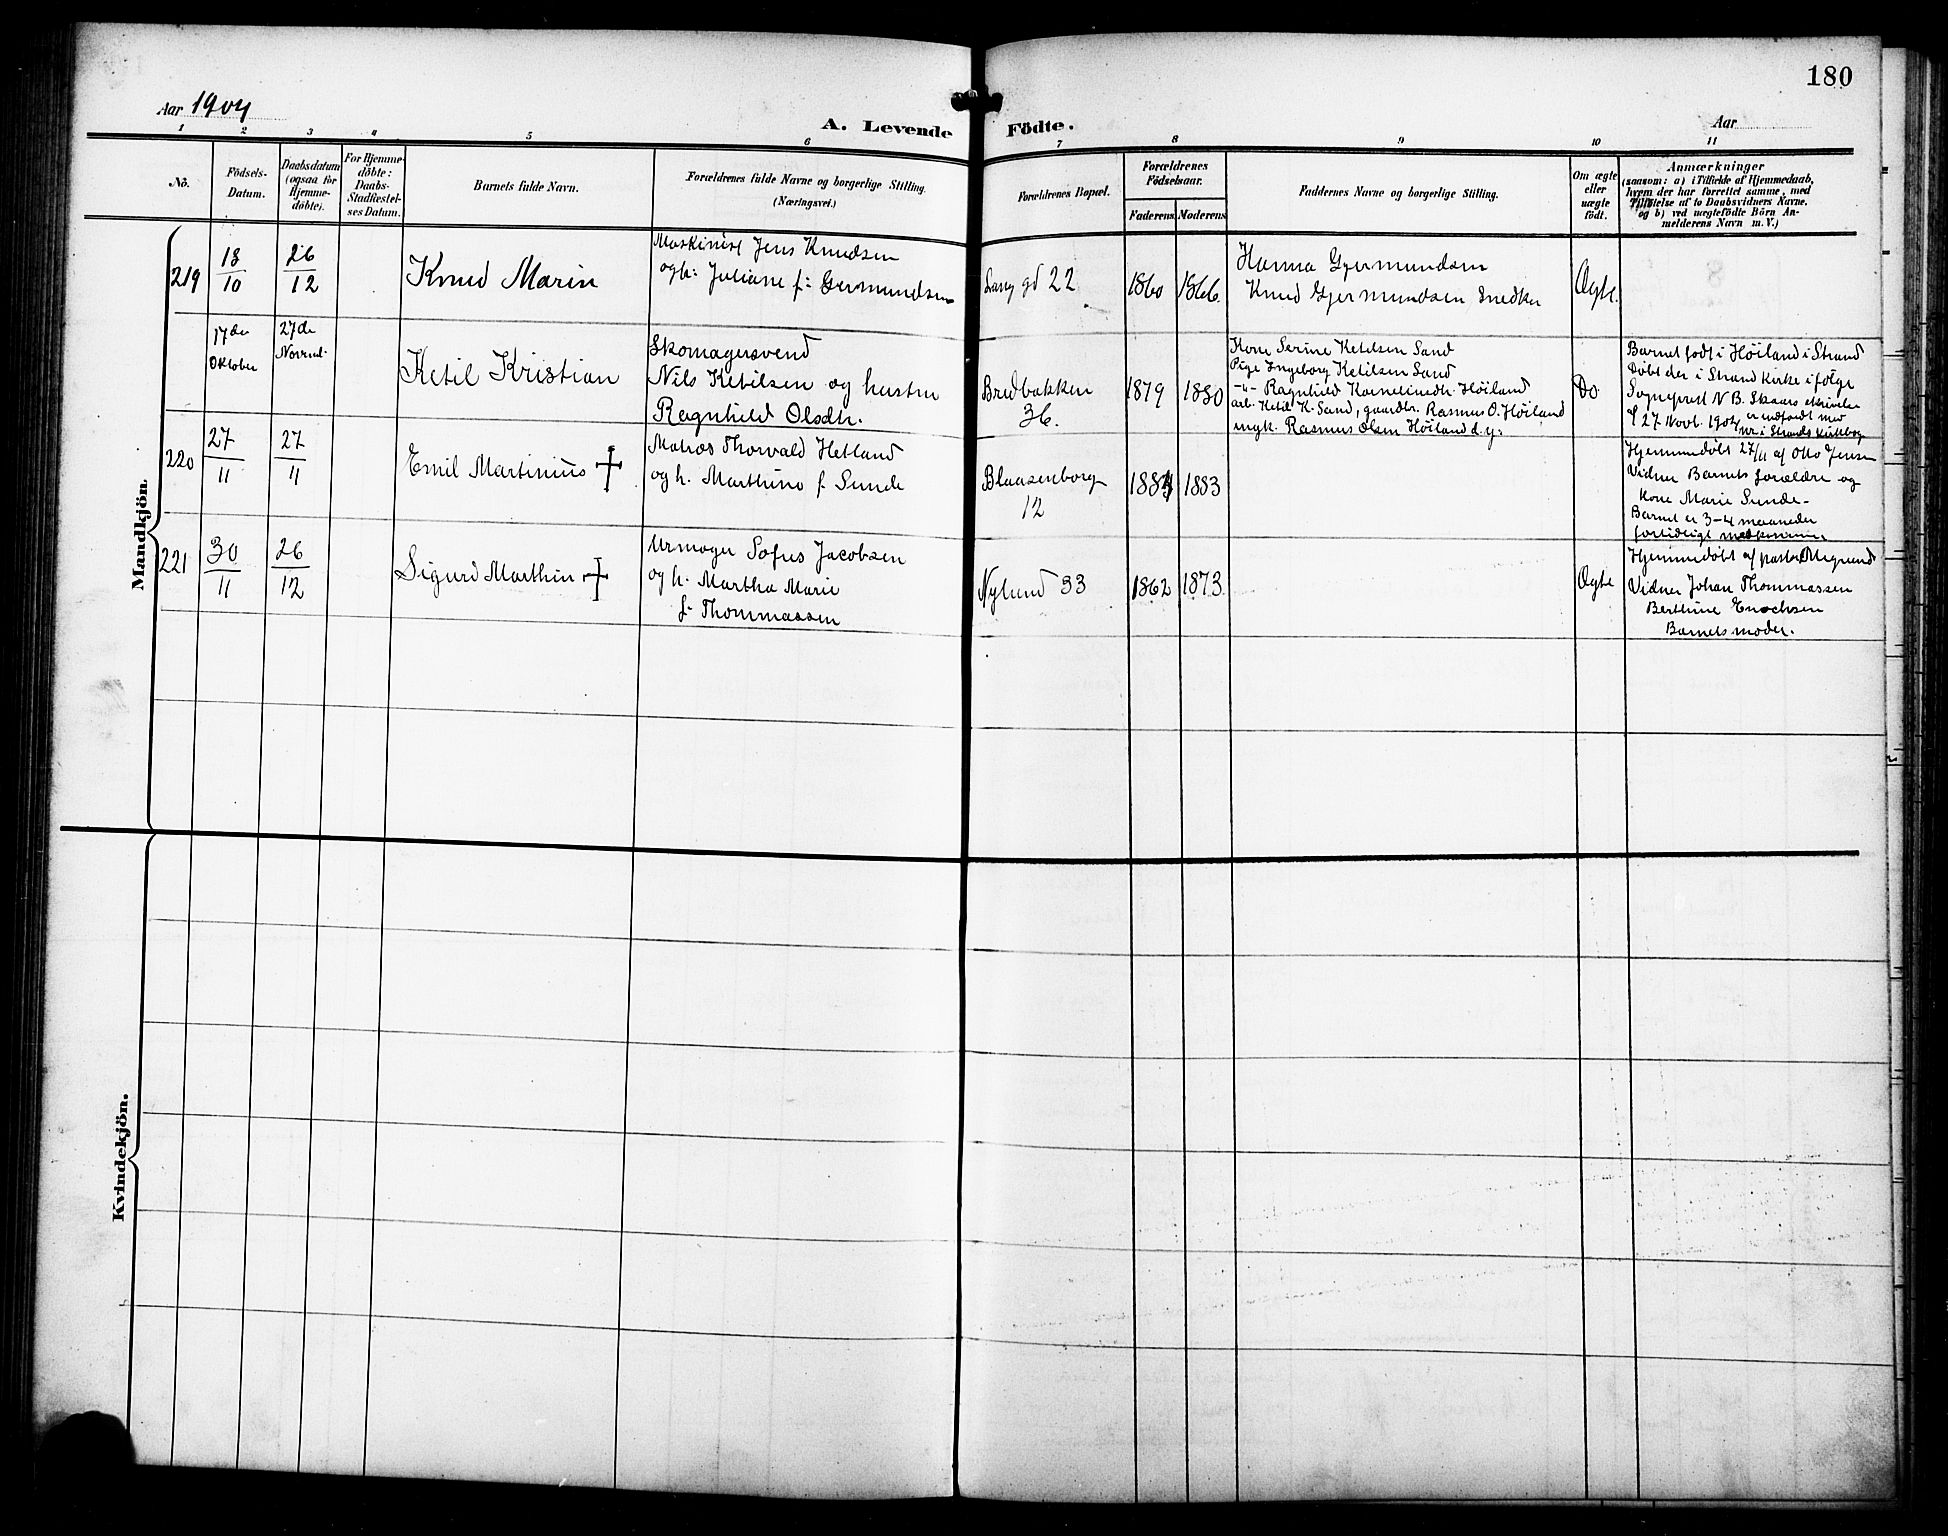 180
Aar 1904
A. Levende Födte.
Aar
1 2 3 4 5 6 7 8 9 10 11
No.
Födsels-
Datum.
Daabsdatum
(ogsaa for
Hjemme-
döbte).
For Hjemme-
döbte:
Daabs-
Stadfestel-
ses Datum.
Barnets fulde Navn.
Forældrenes fulde Navne og borgerlige Stilling.
(Næringsvei.)
Forældrenes Bopæl.
Forældrenes
Födselsaar.
Faderens. Moderens.
Faddernes Navne og borgerlige Stilling.
Om ægte
eller
uægte
födt.
Anmærkninger
(saasom: a) i Tilfælde af Hjemmedaab,
hvem der har forrettet samme, med
Tilföielse af to Daabsvidners Navne,
og b) ved uægtefödte Börn An-
melderens Navn m. V.)
Mandkjön.
219
18
10
26
12
Knud Marin
Maskinist Jens Knudsen
og h: Juliane f: Germundsen
Lang gd 22
1860
1866.
Hanna Gjermundsen
Knud Gjermundsen Snedker
Ægte.
17de
Oktober
27de
Novemb.
Ketil Kristian
Skomagersvend
Nils Ketilsen og hustru
Ragnhild Olsdtr.
Bredbakken
36.
1879
1880
Kone Serine Ketilsen Sand
Pige Ingeborg Ketilsen Sand
-"- Ragnhild Kornelinedtr. Höiland
arb. Ketil K. Sand, gaardbr. Rasmus O. Höiland
ungk. Rasmus Olsen Höiland d. y.
Do
Barnet födt i Höiland i Strand
Döbt der i Strand Kirke i fölge
Sogneprest N B. Skaars skrivelse
27 Novb. 1904
er indfördt med
nr. i Strands Kirkebog
220
27
11
27
11
Emil Martinius †
Matros Thorvald Hetland
og h. Marthine f. Sunde
Blaasenborg
12
1884
1883
Hjemmedöbt 27/11 af Otto Jensen
Vidner Barnets forældre og
Kone Marie Sunde-
Barnet er 3-4 maaneder
fortidligt
221
30
11
26
12
Sigurd Marthin †
Urmager Sofus Jacobsen
og h. Martha Marie
f. Thommassen
Nylund 33
1862
1873.
Ægte
Hjemmedöbt af pastor
Vidner Johan Thommassen
Berthine Enochsen
Barnets moder.
Kvindekjön.